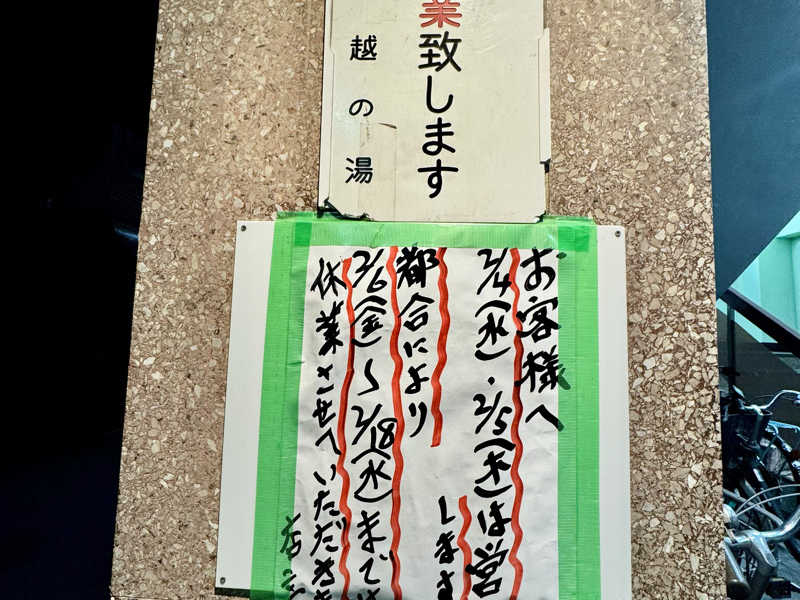 業致します
越の湯
お客様へ
2/4(水)・2/5(木)は営
します
都合により
2/6(金)〜2/18(水)までは
休業させていただきま
店